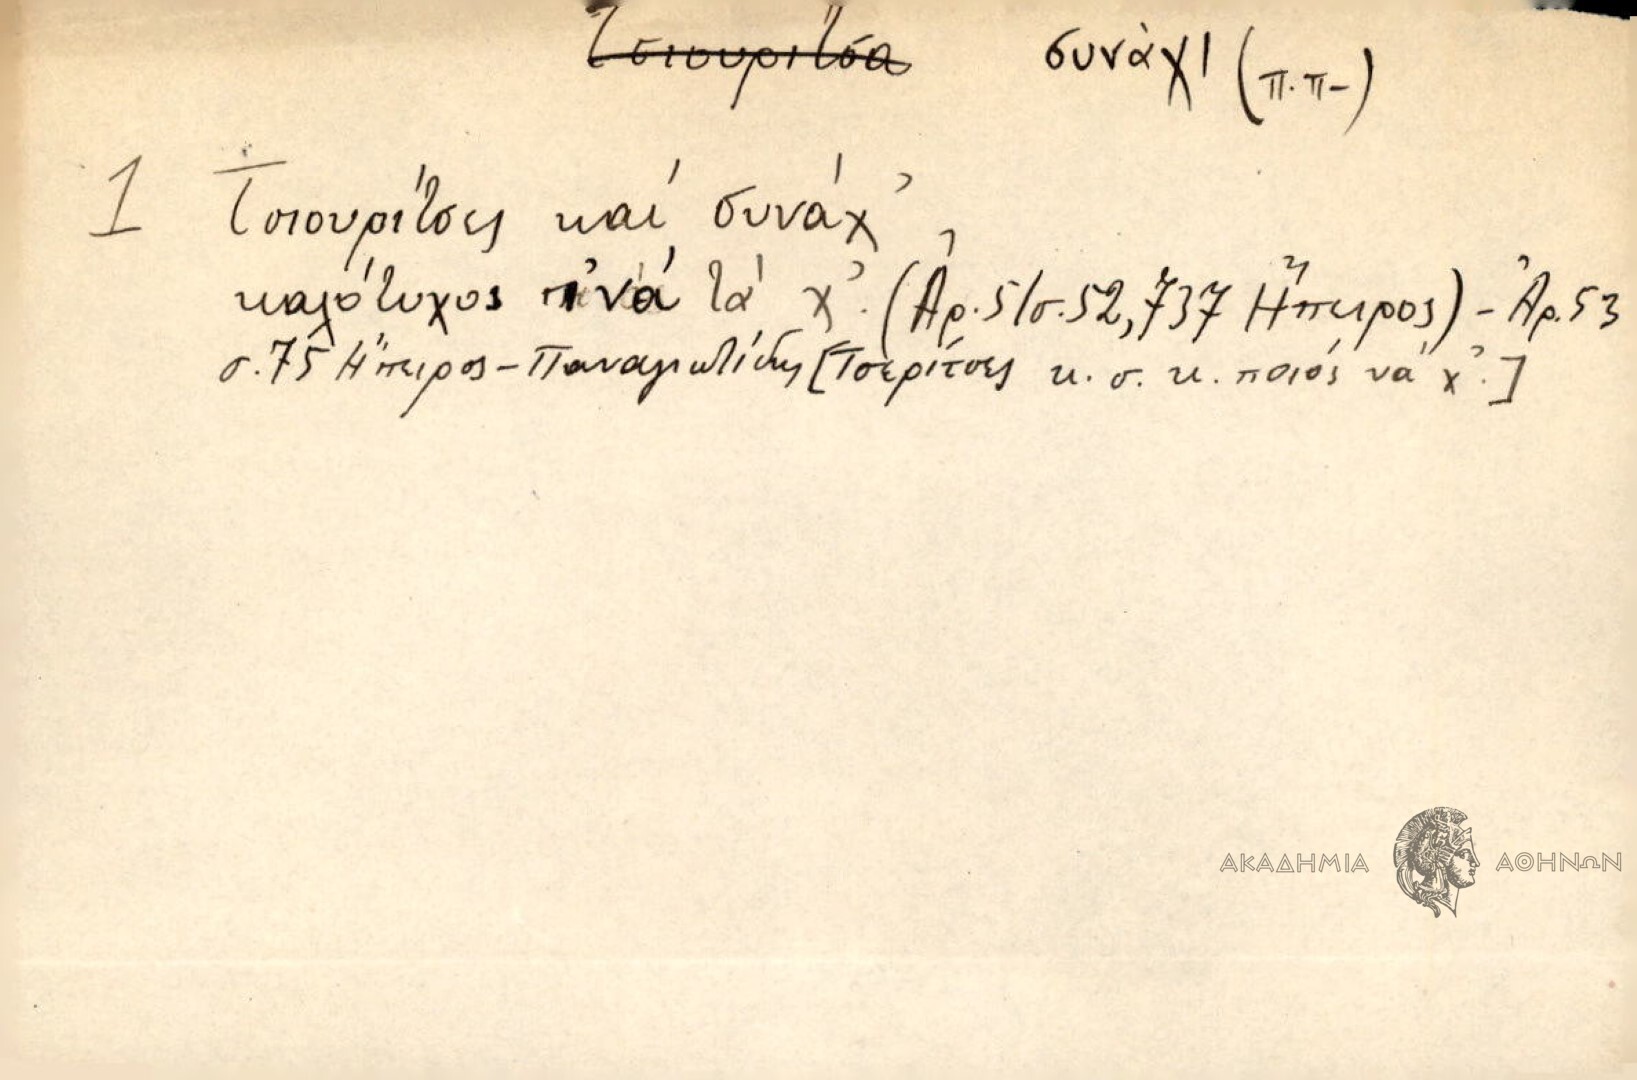 Τσιουρίτσα συνάχι (π.π-)
1 Τσιουρίτσες καί συνάχ᾿,
καλότυχος π᾿ νά τά χ᾿. (Ἀρ. 51 σ. 52, 737 Ἤπειρος) - Ἀρ. 53
σ. 75 Ἤπειρος - Παναγιωτίδης [Τσερίτσες κ. σ. κ. ποιός νά χ᾿.]
ΑΚΑΔΗΜΙΑ ΑΘΗΝΩΝ